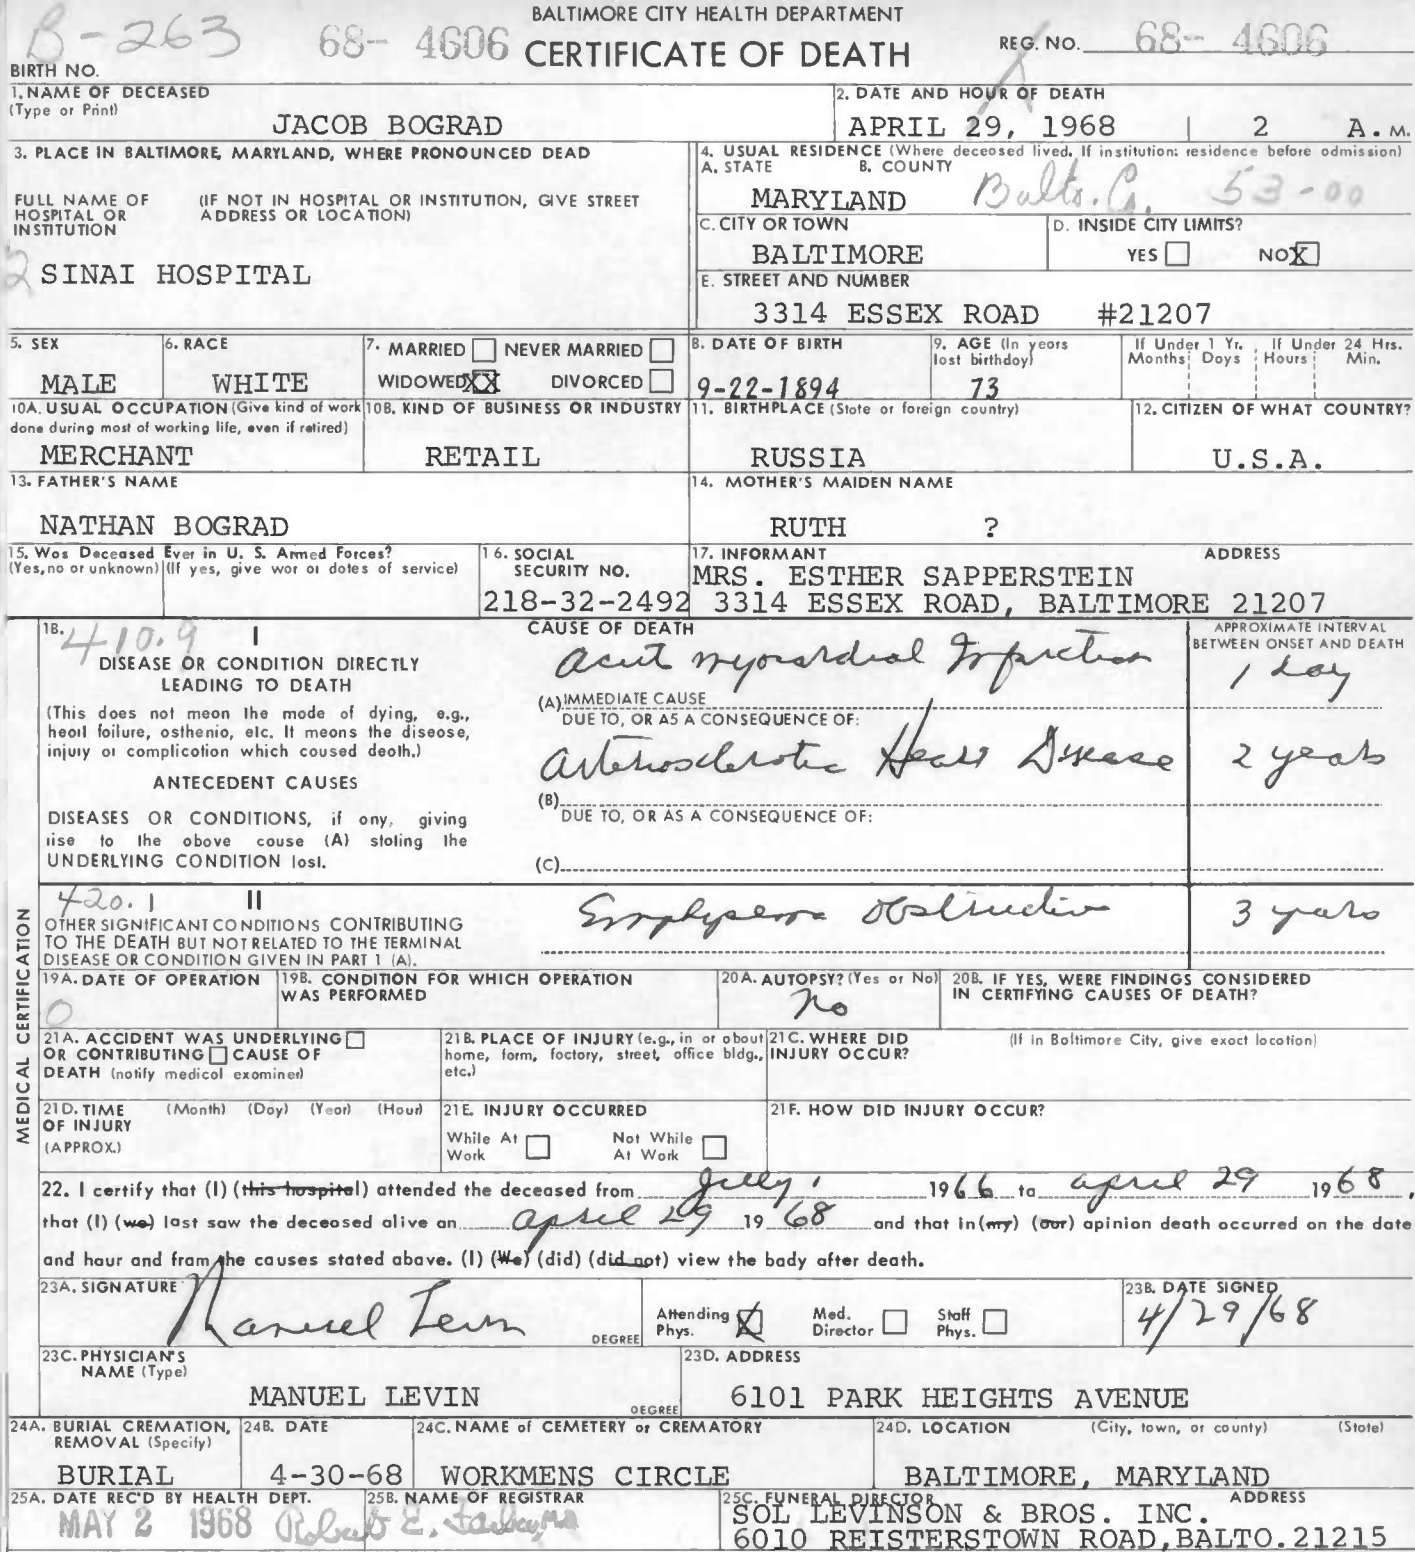 BALTIMORE CITY HEALTH DEPARTMENT
B-263 68- 4606 CERTIFICATE OF DEATH REG. NO. 68- 4606
BIRTH NO.
1. NAME OF DECEASED
(Type or Print)
JACOB BOGRAD
2. DATE AND HOUR OF DEATH
APRIL 29, 1968 2 A.M.
3. PLACE IN BALTIMORE, MARYLAND, WHERE PRONOUNCED DEAD
FULL NAME OF HOSPITAL OR INSTITUTION
(IF NOT IN HOSPITAL OR INSTITUTION, GIVE STREET ADDRESS OR LOCATION)
SINAI HOSPITAL
4. USUAL RESIDENCE (Where deceased lived. If institution: residence before admission)
A. STATE B. COUNTY
MARYLAND Balto. Co. 53-00
C. CITY OR TOWN
BALTIMORE
D. INSIDE CITY LIMITS?
YES NO X
E. STREET AND NUMBER
3314 ESSEX ROAD #21207
5. SEX
MALE
6. RACE
WHITE
7. MARRIED NEVER MARRIED
WIDOWED XX DIVORCED
8. DATE OF BIRTH
9-22-1894
9. AGE (In years last birthday)
73
If Under 1 Yr. Months Days
If Under 24 Hrs. Hours Min.
10A. USUAL OCCUPATION (Give kind of work done during most of working life, even if retired)
MERCHANT
10B. KIND OF BUSINESS OR INDUSTRY
RETAIL
11. BIRTHPLACE (State or foreign country)
RUSSIA
12. CITIZEN OF WHAT COUNTRY?
U.S.A.
13. FATHER'S NAME
NATHAN BOGRAD
14. MOTHER'S MAIDEN NAME
RUTH ?
15. Was Deceased Ever in U. S. Armed Forces?
(Yes, no or unknown) (If yes, give war or dates of service)
16. SOCIAL SECURITY NO.
218-32-2492
17. INFORMANT ADDRESS
MRS. ESTHER SAPPERSTEIN
3314 ESSEX ROAD, BALTIMORE 21207
MEDICAL CERTIFICATION
18. 410.9 I
DISEASE OR CONDITION DIRECTLY
LEADING TO DEATH
(This does not mean the mode of dying, e.g.,
heart failure, asthenia, etc. It means the disease,
injury or complication which caused death.)
ANTECEDENT CAUSES
DISEASES OR CONDITIONS, if any, giving
rise to the above cause (A) stating the
UNDERLYING CONDITION last.
CAUSE OF DEATH
APPROXIMATE INTERVAL BETWEEN ONSET AND DEATH
Acute myocardial Infarction 1 day
(A) IMMEDIATE CAUSE
DUE TO, OR AS A CONSEQUENCE OF:
Arteriosclerotic Heart Disease 2 years
(B)
DUE TO, OR AS A CONSEQUENCE OF:
(C)
420.1 II
OTHER SIGNIFICANT CONDITIONS CONTRIBUTING
TO THE DEATH BUT NOT RELATED TO THE TERMINAL
DISEASE OR CONDITION GIVEN IN PART 1 (A).
Emphysema Obstructive 3 years
19A. DATE OF OPERATION
0
19B. CONDITION FOR WHICH OPERATION WAS PERFORMED
20A. AUTOPSY? (Yes or No)
no
20B. IF YES, WERE FINDINGS CONSIDERED IN CERTIFYING CAUSES OF DEATH?
21A. ACCIDENT WAS UNDERLYING
OR CONTRIBUTING CAUSE OF
DEATH (notify medical examiner)
21B. PLACE OF INJURY (e.g., in or about home, farm, factory, street, office bldg., etc.)
21C. WHERE DID INJURY OCCUR?
(If in Baltimore City, give exact location)
21D. TIME OF INJURY (APPROX.)
(Month) (Day) (Year) (Hour)
21E. INJURY OCCURRED
While At Work Not While At Work
21F. HOW DID INJURY OCCUR?
22. I certify that (I) (this hospital) attended the deceased from July, 1966 to April 29 1968,
that (I) (we) last saw the deceased alive on April 29 1968 and that in (my) (our) opinion death occurred on the date
and hour and from the causes stated above. (I) (We) (did) (did not) view the body after death.
23A. SIGNATURE
Manuel Levin DEGREE
Attending Phys. X Med. Director Staff Phys.
23B. DATE SIGNED
4/29/68
23C. PHYSICIAN'S NAME (Type)
MANUEL LEVIN DEGREE
23D. ADDRESS
6101 PARK HEIGHTS AVENUE
24A. BURIAL CREMATION, REMOVAL (Specify)
BURIAL
24B. DATE
4-30-68
24C. NAME of CEMETERY or CREMATORY
WORKMENS CIRCLE
24D. LOCATION (City, town, or county) (State)
BALTIMORE, MARYLAND
25A. DATE REC'D BY HEALTH DEPT.
MAY 2 1968
25B. NAME OF REGISTRAR
Robert E. Farber, MD
25C. FUNERAL DIRECTOR ADDRESS
SOL LEVINSON & BROS. INC.
6010 REISTERSTOWN ROAD, BALTO. 21215